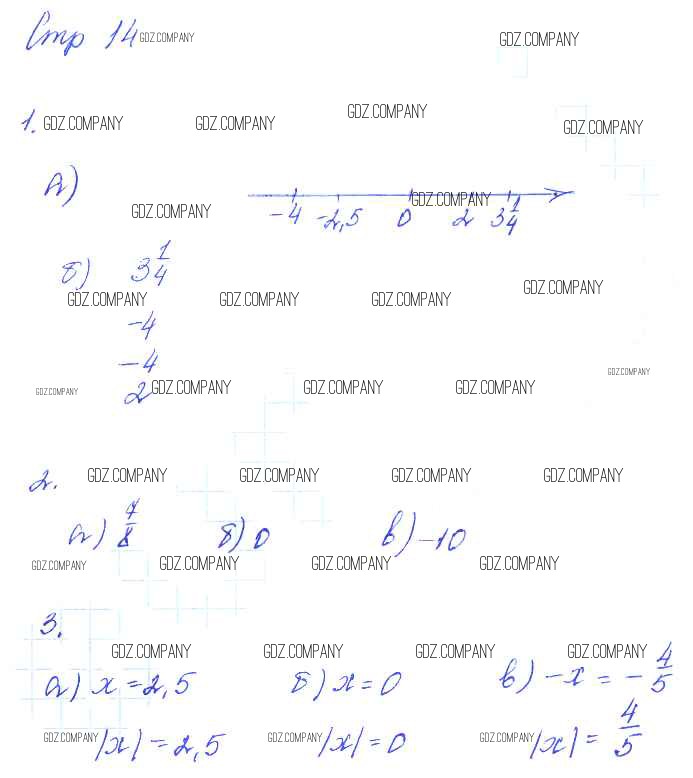 Стр 14 GDZ.COMPANY GDZ.COMPANY
1. GDZ.COMPANY GDZ.COMPANY GDZ.COMPANY GDZ.COMPANY
а) GDZ.COMPANY GDZ.COMPANY
-4 -2,5 0 2 3 1/4
б) 3 1/4
GDZ.COMPANY GDZ.COMPANY GDZ.COMPANY GDZ.COMPANY
-4
-4
GDZ.COMPANY 2 GDZ.COMPANY GDZ.COMPANY GDZ.COMPANY GDZ.COMPANY
2. GDZ.COMPANY GDZ.COMPANY GDZ.COMPANY GDZ.COMPANY
а) 7/8 б) 0 в) -10
GDZ.COMPANY GDZ.COMPANY GDZ.COMPANY GDZ.COMPANY
3.
GDZ.COMPANY GDZ.COMPANY GDZ.COMPANY GDZ.COMPANY
а) x = 2,5 б) x = 0 в) -x = - 4/5
GDZ.COMPANY |x| = 2,5 GDZ.COMPANY |x| = 0 GDZ.COMPANY |x| = 4/5